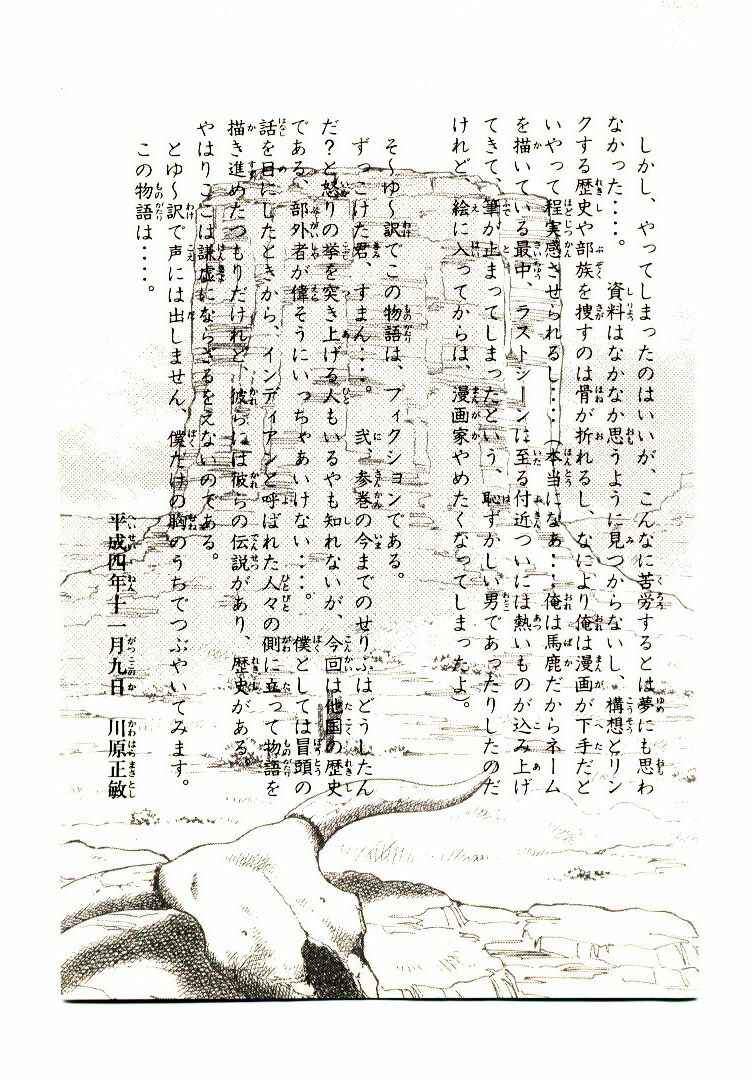 しかし、やってしまったのはいいが、こんなに苦労するとは夢にも思わ
なかった・・・・。資料はなかなか思うように見つからないし、構想とリン
クする歴史や部族を捜すのは骨が折れるし、なにより俺は漫画が下手だと
いやって程実感させられるし・・・・(本当になぁ・・・・俺は馬鹿だからネーム
を描いている最中、ラストシーンは至る付近ついには熱いものが込み上げ
てきて、筆が止まってしまったという、恥ずかしい男であったりしたのだ
けれど、絵に入ってからは、漫画家やめたくなってしまったよ)。
そ〜ゆ〜訳でこの物語は、フィクションである。
ずっこけた君、すまん・・・・。弐、参巻の今までのせりふはどうしたん
だ?と怒りの拳を突き上げる人もいるやも知れないが、今回は他国の歴史
である、部外者が偉そうにいっちゃあいけない・・・・。僕としては冒頭の
話を目にしたときから、インディアンと呼ばれた人々の側に立って物語を
描き進めたつもりだけれど、彼らには彼らの伝説があり、歴史がある。
やはりここは謙虚にならざるをえないのである。
とゆ〜訳で声には出しません、僕だけの胸のうちでつぶやいてみます。
この物語は・・・・。
平成四年十一月九日　川原正敏